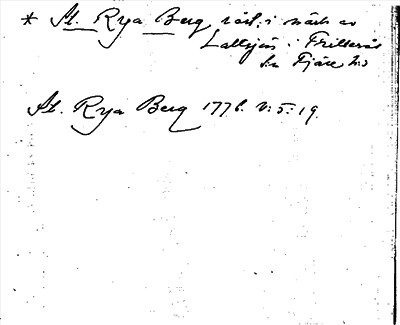 * St. Rya Berg, rået i närh av
Lallsjön i Fritterås
sn Fjäre hd
St. Rya Berg 1776. V: 5: 19.